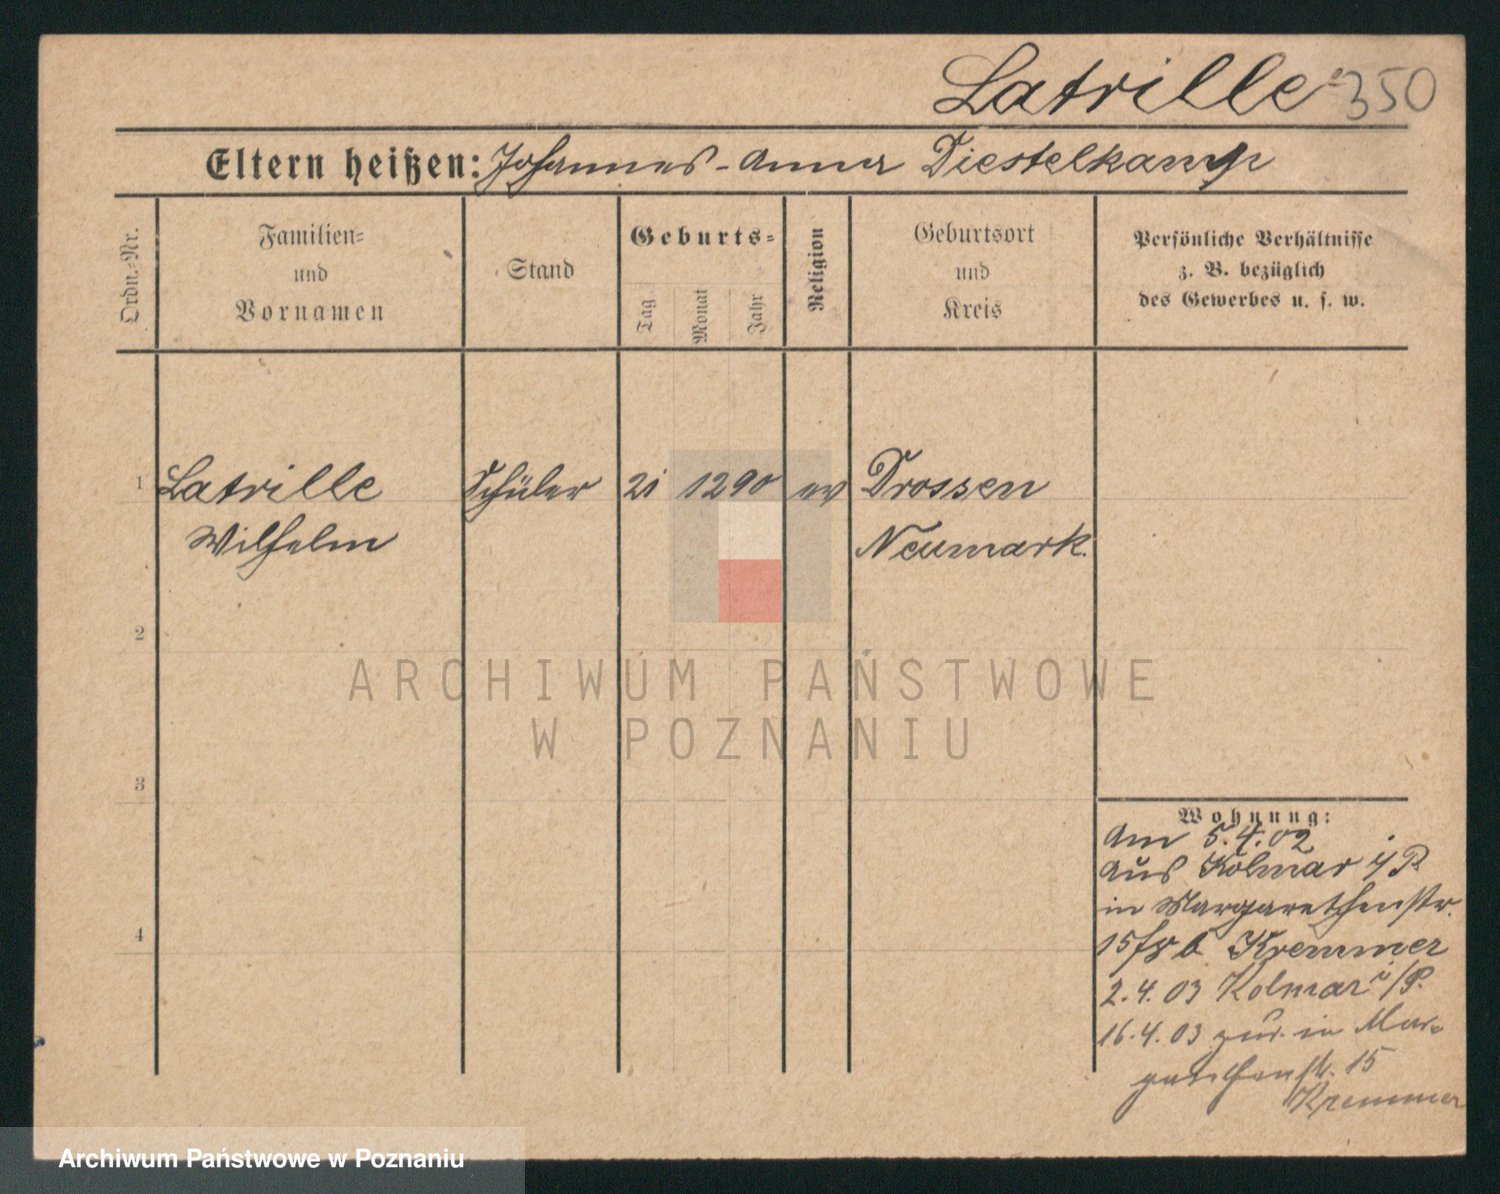 Latrille 350
Eltern heißen: Johannes - Anna Diestelkamp
Ordn.-Nr.
Familien-
und
Vornamen
Stand
Geburts-
Tag
Monat
Jahr
Religion
Geburtsort
und
Kreis
Persönliche Verhältnisse
z. B. bezüglich
des Gewerbes u. s. w.
1 Latrille Schüler 21 12 90 ev Drossen
Wilhelm Neumark.
2
3
4
Wohnung:
Am 5.4.02
aus Kolmar i/P
in Margarethenstr.
15 b Kremmer
2.4.03 Kolmar i/P.
16.4.03 zur. in Mar-
garethenstr. 15
Kremmer
ARCHIWUM PAŃSTWOWE
W POZNANIU
Archiwum Państwowe w Poznaniu